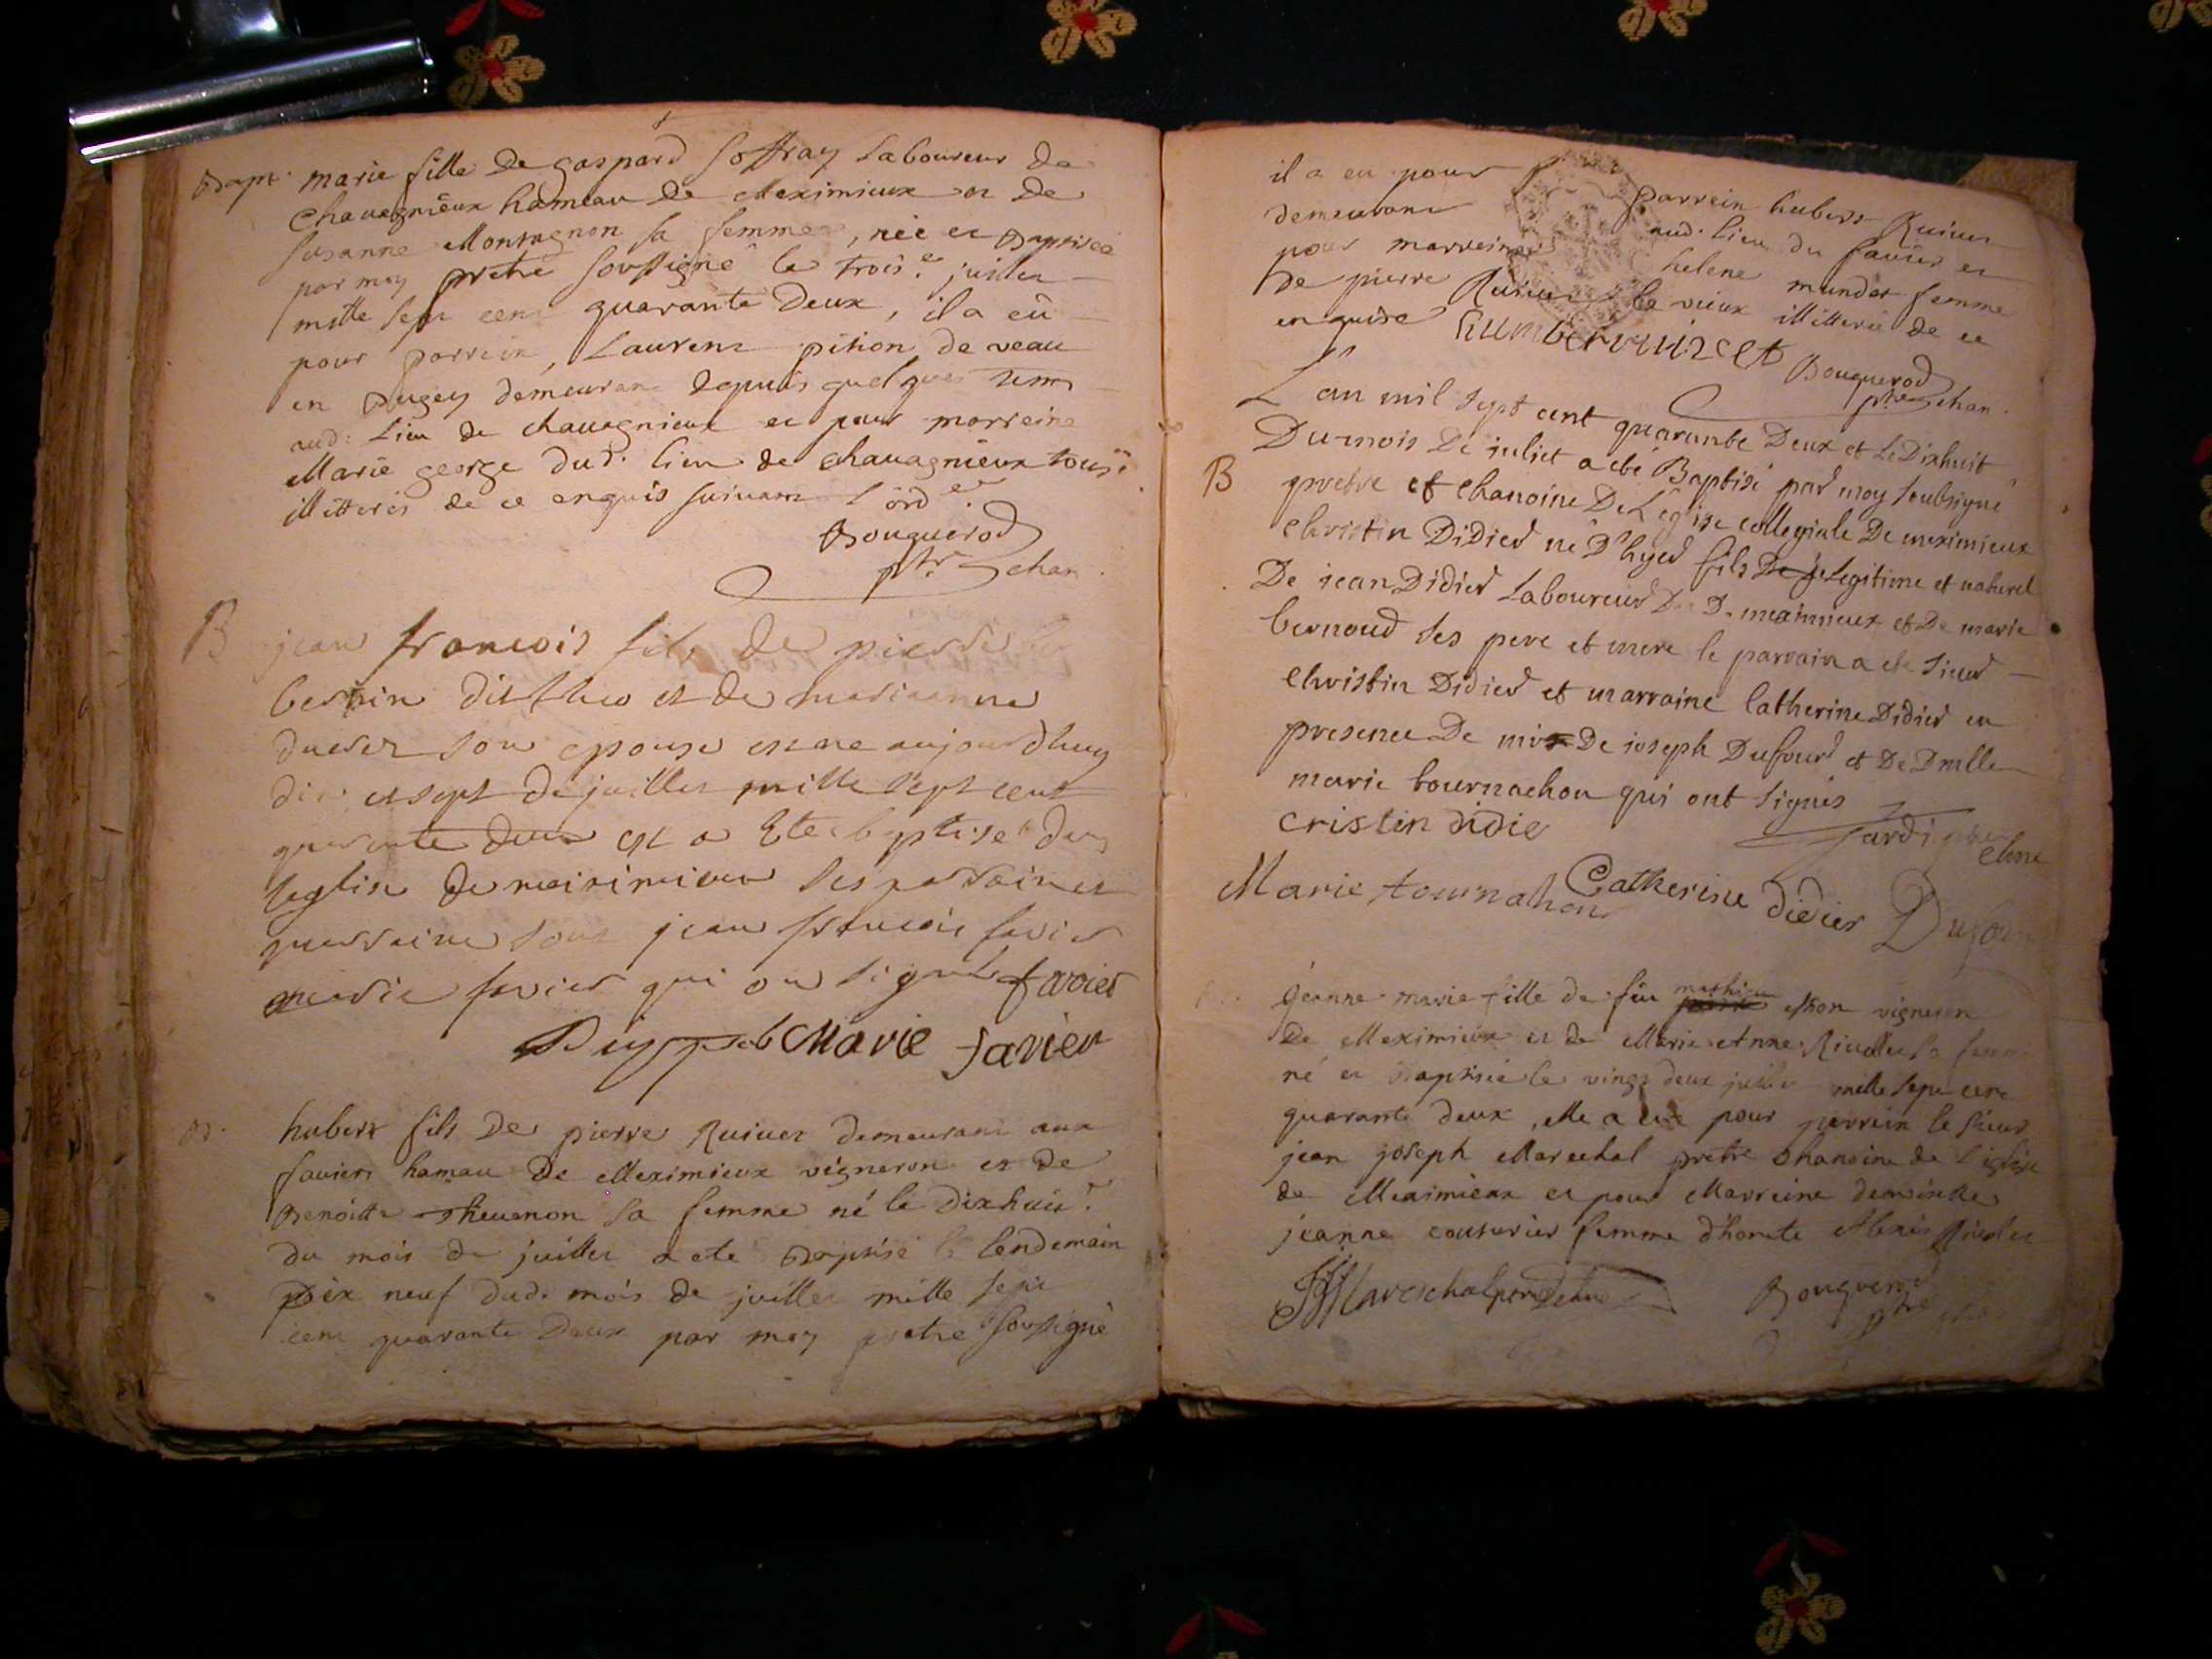 Bapt. marie fille De gaspard soffray Laboureur de
Chavagnieux hameau de Meximieux et De
Susanne Montagnon sa femme, née et Baptisée
par moy pretre soussigné le trois.e juillet
mille sept cent quarante Deux, il a eû
pour parrein, Laurent pition de veau
en Bugey demeurant Depuis quelques tems
aud. Lieu de chavagnieux et pour marreine
Marie george dud. lieu de chavagnieux tous
illitterés de ce enquis suivant l'ord.ce
Bouguerod
ptr. chan.
B jean francois fils de pierre
bertin dit et de marianne
son epouse est ne aujourdhuy
dix et sept de juillet mille sept cent
quarente deux et a Ete baptise dans
leglise de meximieux ses parrain et
marraine sont jean francois favier
marie favier qui on signé favier
Marie favier
B. hubert fils De pierre Ruivet demeurant aux
faviers hamau De Meximieux vigneron et de
Benoitte thevenon sa femme né le Dixhuit.e
du mois de juillet a eté Baptisé le lendemain
Dix neuf dud. mois de juillet mille sept
cent quarante Deux par moy pretre soussigné
il a eu pour parrein hubert Ruivet
demeurant aud. lieu du favier et
pour marreine helene mundet femme
de pierre Ruivet le vieux illitteré de ce
enquise humber ruivet
Bouguerod
ptre chan.
L'an mil sept cent quarante Deux et Le Dixhuit
Du mois De juliet a eté Baptisé par moy soubsigné
B pretre et chanoine De L'eglise collegiale De meximieux
christin Didier né D'hyer fils De je Legitime et naturel
De jean Didier Laboureur De meximieux et De marie
bernoud ses pere et mere le parrain a ete sieur
christin Didier et marraine Catherine Didier en
presence De De joseph Dufour et De Dmlle
marie tournachon qui ont signés
cristin didie Jardi
chne
Marie tournahon Catherine didier Dufour
jeanne marie fille de feu mathieu vigneron
De Meximieux et de Marie Anne Rivollet sa femme
né et Baptisée le vingt deux juillet mille sept cent
quarante deux, elle a eu pour parrein le sieur
jean joseph Marechal pretre chanoine de L'eglise
de Meximieux et pour Marreine demoiselle
jeanne couturier femme d'honete Alexis
JJMareschal ptre chne Bouguerod
ptre